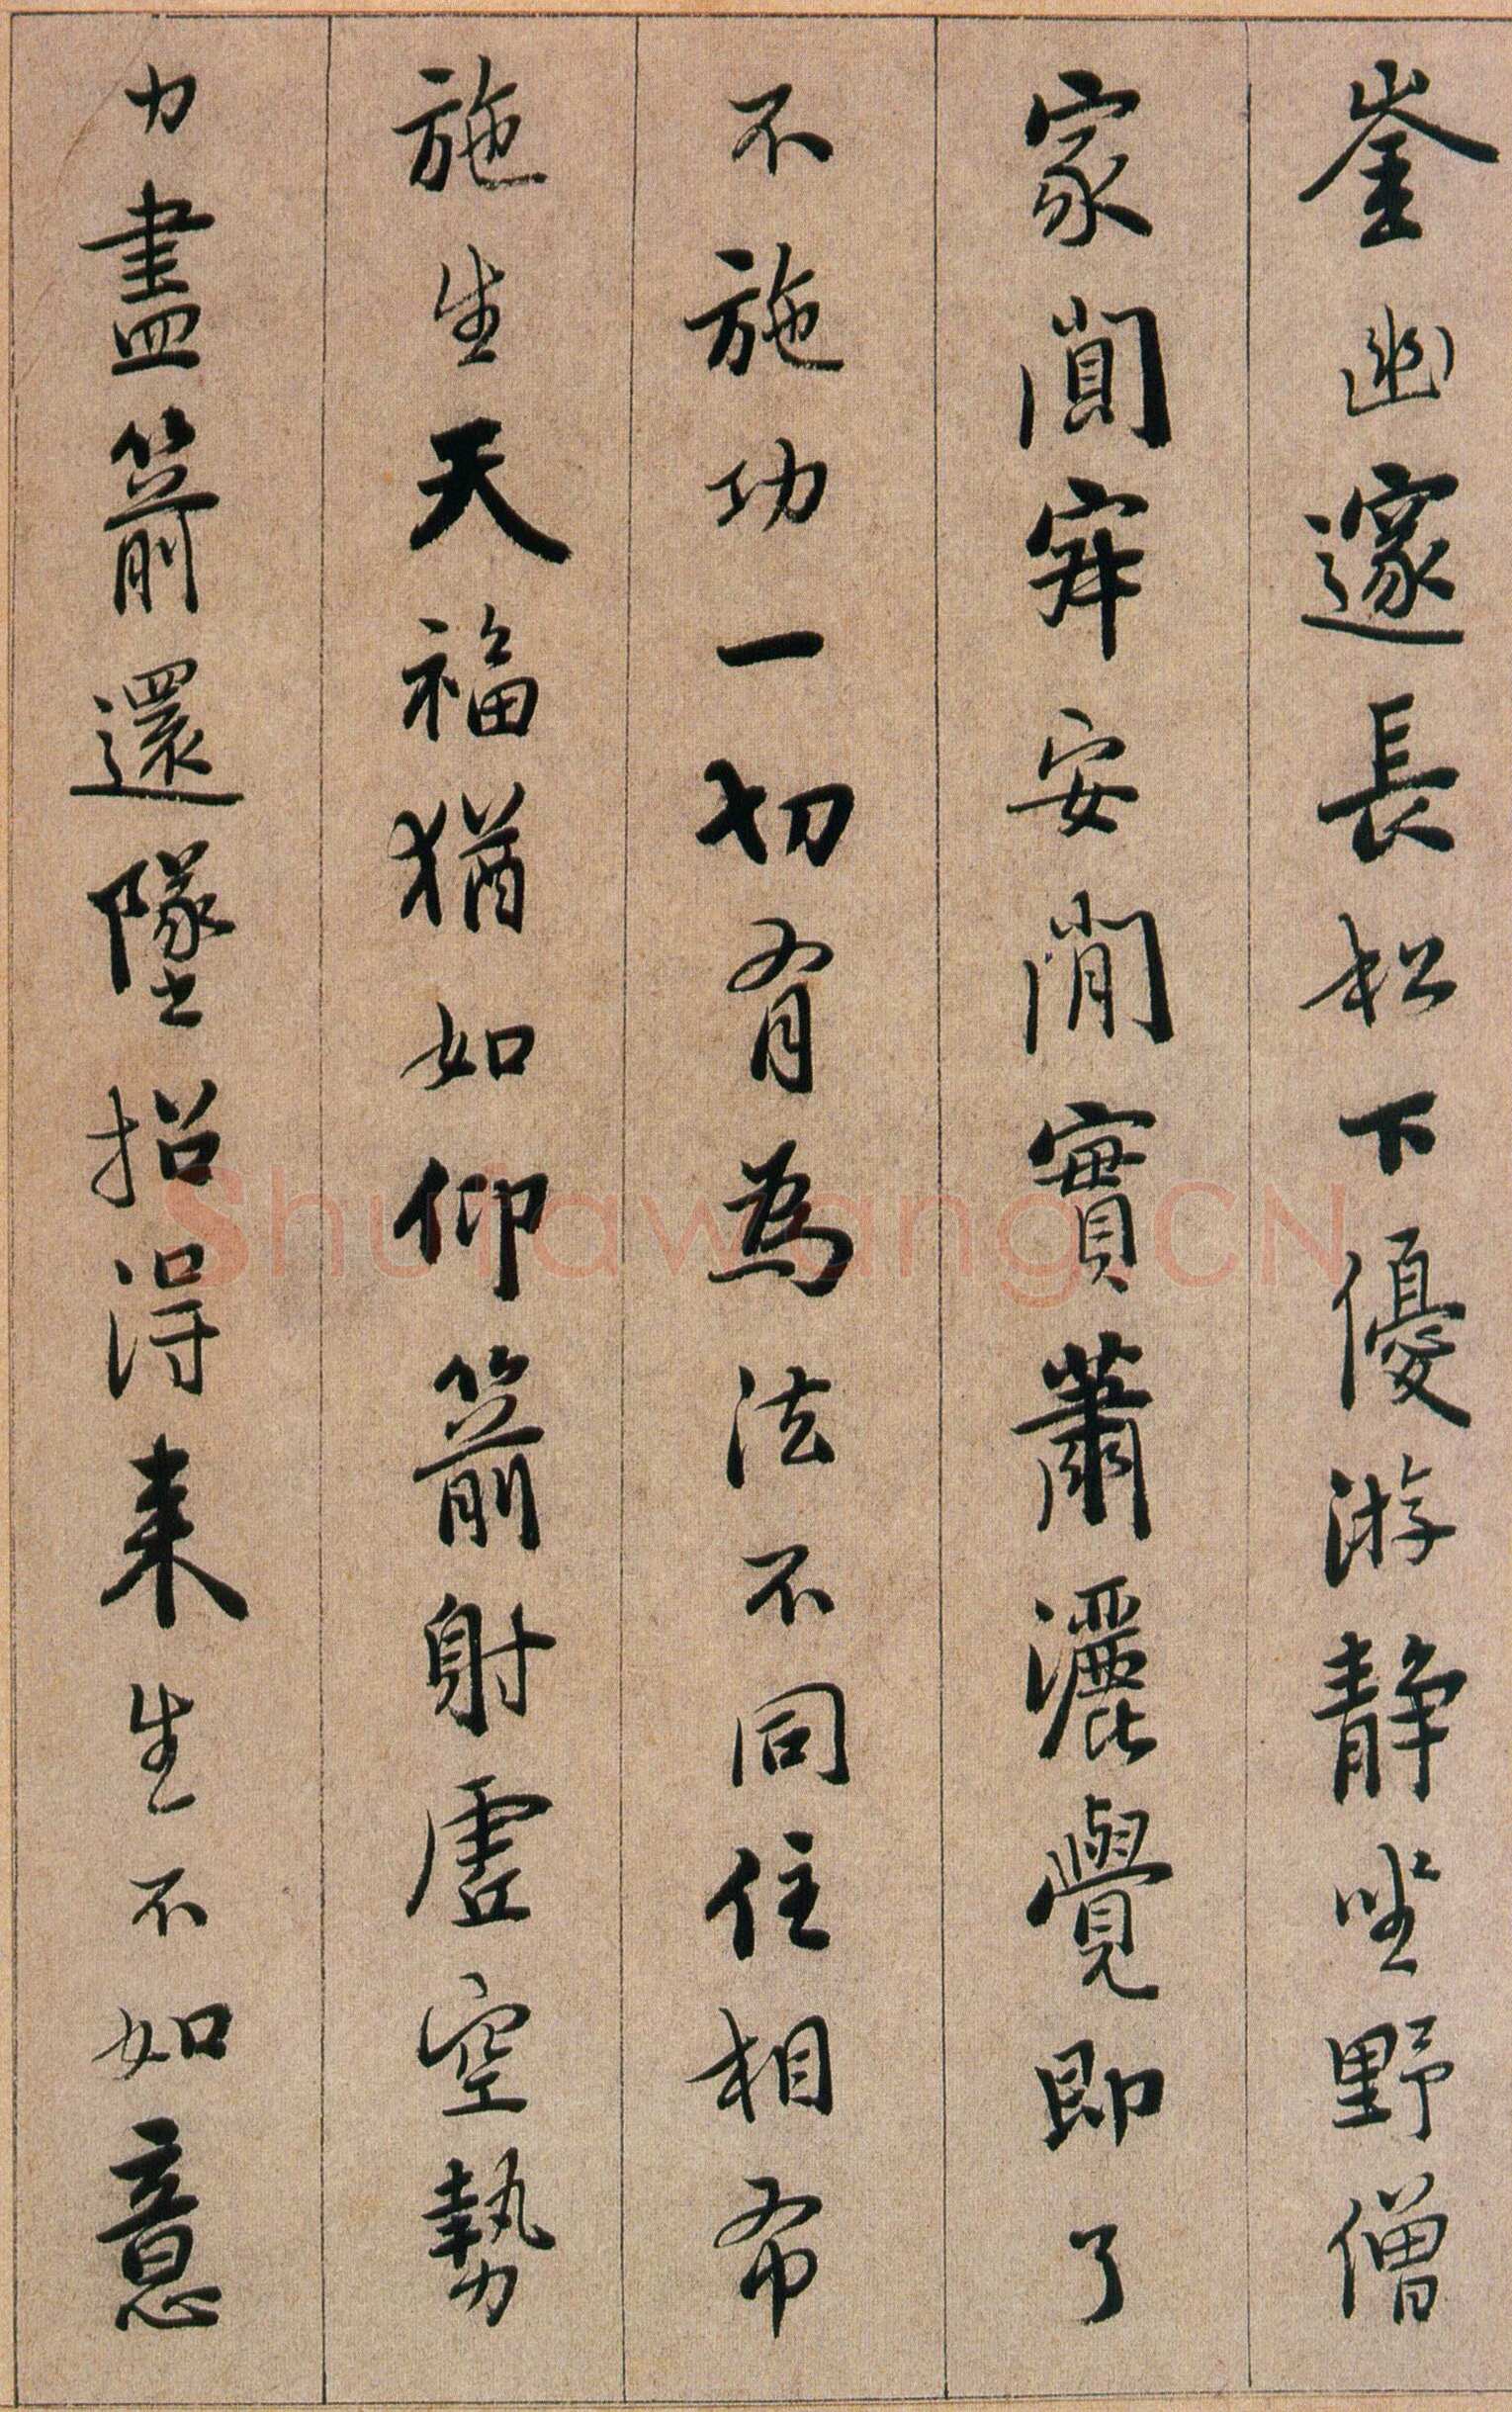 崟幽邃長松下優游靜坐野僧
家闃㝛安閑實蕭灑覺即了
不施功一切有為法不同住相布
施生天福猶如仰箭射虛空勢
力盡箭還墜招得来生不如意
ShufawangCN